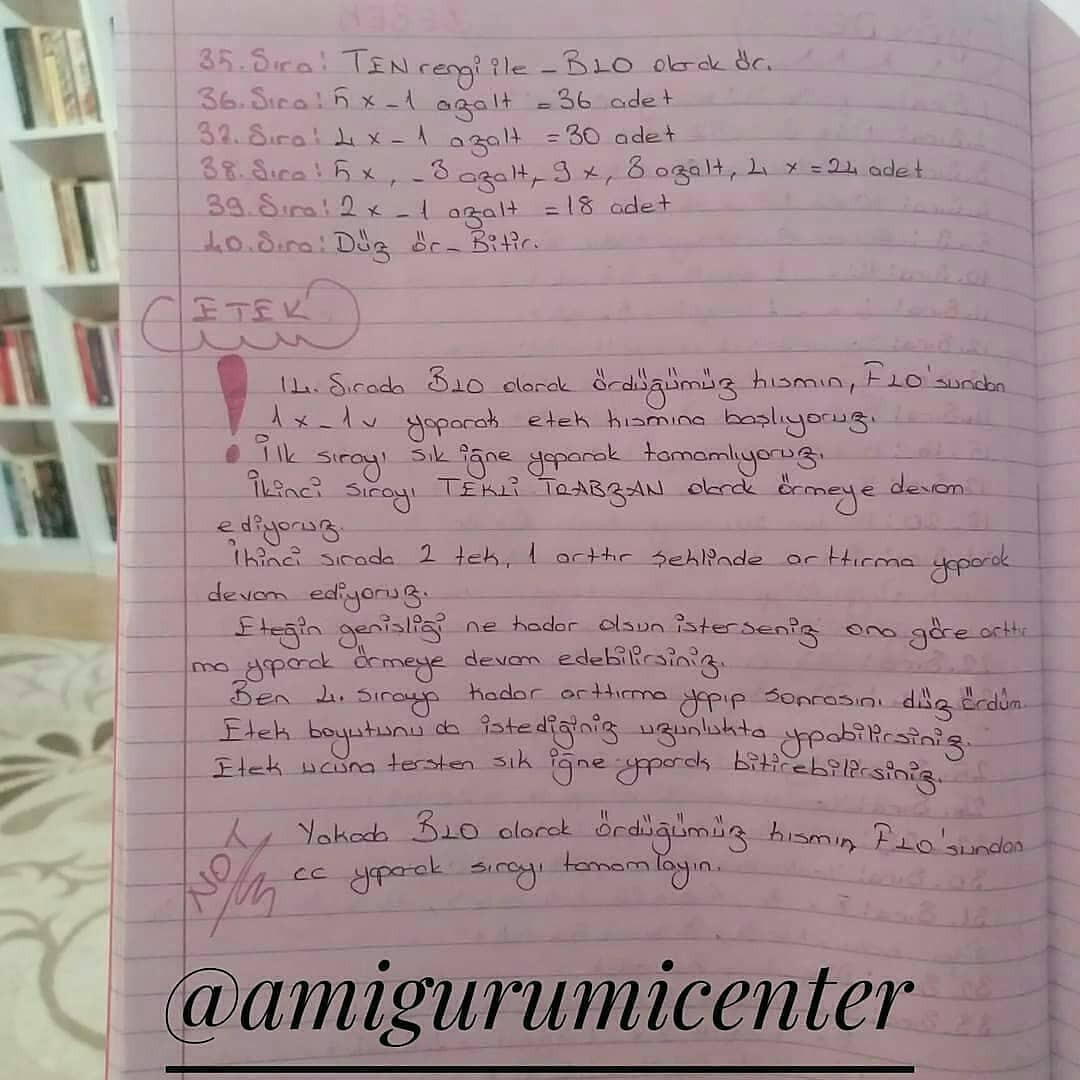 35. Sıra: TEN rengi ile - BLO olarak ör.
36. Sıra: 5 x - 1 azalt = 36 adet
37. Sıra: 4 x - 1 azalt = 30 adet
38. Sıra: 5 x, - 3 azalt, 9 x, 3 azalt, 4 x = 24 adet
39. Sıra: 2 x - 1 azalt = 18 adet
40. Sıra: Düz ör - Bitir.
ETEK
! 14. Sırada BLO olarak ördüğümüz kısmın, FLO'sundan
1 x - 1 v yaparak etek kısmına başlıyoruz.
İlk sırayı sık iğne yaparak tamamlıyoruz.
İkinci sırayı TEKLİ TRABZAN olarak örmeye devam
ediyoruz.
İkinci sırada 2 tek, 1 arttır şeklinde arttırma yaparak
devam ediyoruz.
Eteğin genişliği ne kadar olsun isterseniz ona göre arttır
ma yaparak örmeye devam edebilirsiniz.
Ben 4. sıraya kadar arttırma yapıp sonrasını düz ördüm.
Etek boyutunu da istediğiniz uzunlukta yapabilirsiniz.
Etek ucuna tersten sık iğne yaparak bitirebilirsiniz.
Yakada BLO olarak ördüğümüz kısmın FLO'sundan
cc yaparak sırayı tamamlayın.
@amigurumicenter